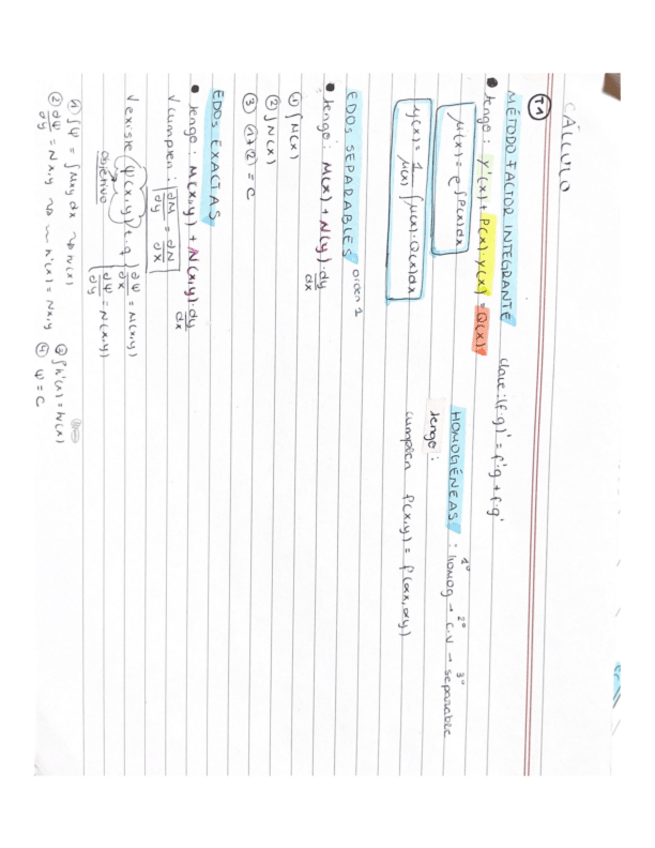 CÁLCULO
T1
MÉTODO FACTOR INTEGRANTE
clave: (f·g)' = f'·g + f·g'
• tengo: y'(x) + P(x)·y(x) = Q(x)
μ(x) = e^∫P(x)dx
y(x) = 1/μ(x) ∫μ(x)·Q(x)dx
HOMOGÉNEAS: 1º homog → 2º C.V → 3º separable
tengo:
cumplen f(x,y) = f(αx,αy)
EDOs SEPARABLES orden 1
• tengo: M(x) + N(y)·dy/dx
① ∫M(x)
② ∫N(x)
③ ①+② = C
EDOs EXACTAS
• tengo: M(x,y) + N(x,y)·dy/dx
√ cumplen: dM/dy = dN/dx
√ existe ψ(x,y) t.q { dψ/dx = M(x,y)
objetivo { dψ/dy = N(x,y)
① ∫ψ = ∫Mxy dx ⇝ h(x)
② dψ/dy = Nx,y ⇝ h'(x) = Nx,y
③ ∫h'(x) = h(x)
④ ψ = C